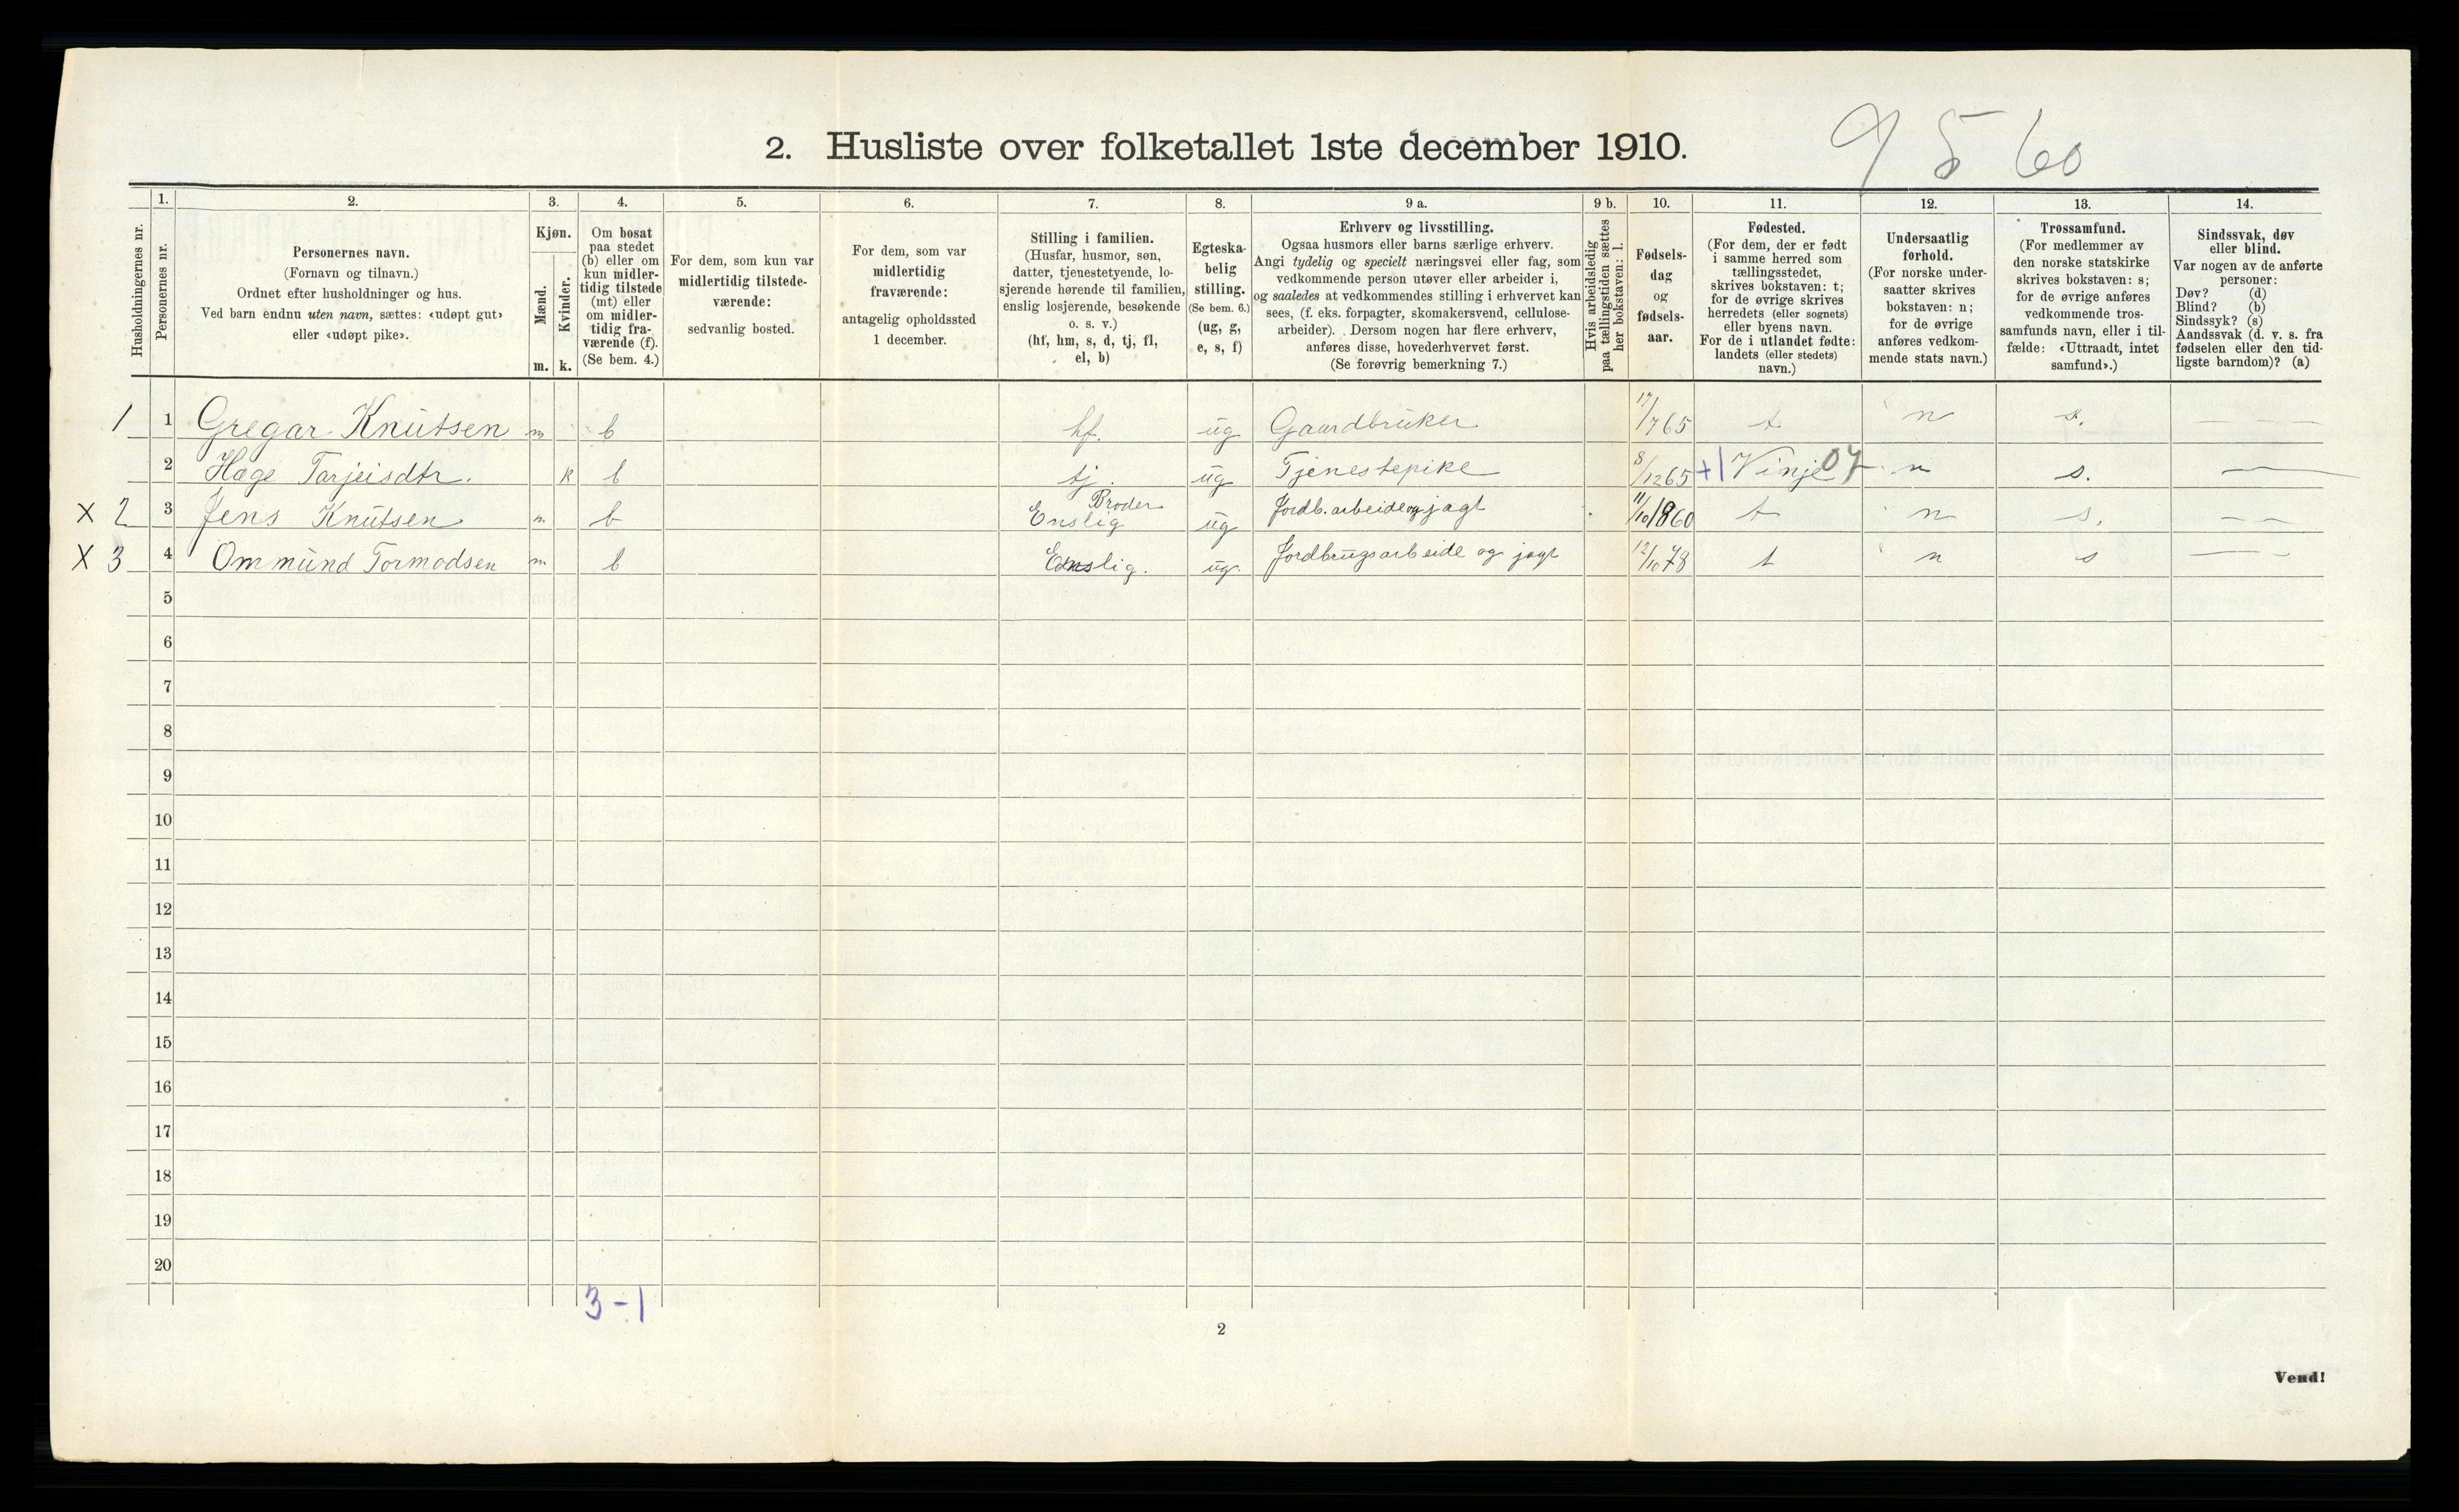 9 5 60
2. Husliste over folketallet 1ste december 1910.
1. 2. 3. 4. 5. 6. 7. 8. 9 a. 9 b. 10. 11. 12. 13. 14.
Husholdningernes nr.
Personernes nr.
Personernes navn.
(Fornavn og tilnavn.)
Ordnet efter husholdninger og hus.
Ved barn endnu uten navn, sættes: «udøpt gut»
eller «udøpt pike».
Kjøn.
Mænd.
Kvinder.
m. k.
Om bosat
paa stedet
(b) eller om
kun midler-
tidig tilstede
(mt) eller
om midler-
tidig fra-
værende (f).
(Se bem. 4.)
For dem, som kun var
midlertidig tilstede-
værende:
sedvanlig bosted.
For dem, som var
midlertidig
fraværende:
antagelig opholdssted
1 december.
Stilling i familien.
(Husfar, husmor, søn,
datter, tjenestetyende, lo-
sjerende hørende til familien,
enslig losjerende, besøkende
o. s. v.)
(hf, hm, s, d, tj, fl,
el, b)
Egteska-
belig
stilling.
(Se bem. 6.)
(ug, g,
e, s, f)
Erhverv og livsstilling.
Ogsaa husmors eller barns særlige erhverv.
Angi tydelig og specielt næringsvei eller fag, som
vedkommende person utøver eller arbeider i,
og saaledes at vedkommendes stilling i erhvervet kan
sees, (f. eks. forpagter, skomakersvend, cellulose-
arbeider). Dersom nogen har flere erhverv,
anføres disse, hovederhvervet først.
(Se forøvrig bemerkning 7.)
Hvis arbeidsledig
paa tællingstiden sættes
her bokstaven: l.
Fødsels-
dag
og
fødsels-
aar.
Fødested.
(For dem, der er født
i samme herred som
tællingsstedet,
skrives bokstaven: t;
for de øvrige skrives
herredets (eller sognets)
eller byens navn.
For de i utlandet fødte:
landets (eller stedets)
navn.)
Undersaatlig
forhold.
(For norske under-
saatter skrives
bokstaven: n;
for de øvrige
anføres vedkom-
mende stats navn.)
Trossamfund.
(For medlemmer av
den norske statskirke
skrives bokstaven: s;
for de øvrige anføres
vedkommende tros-
samfunds navn, eller i til-
fælde: «Uttraadt, intet
samfund».)
Sindssvak, døv
eller blind.
Var nogen av de anførte
personer:
Døv? (d)
Blind? (b)
Sindssyk? (s)
Aandssvak (d. v. s. fra
fødselen eller den tid-
ligste barndom)? (a)
1 1 Gregar Knutsen m b hf. ug Gaardbruker 17/7 65 t n s. — — —
2 Hæge Tarjeisdtr. k b tj. ug Tjenestepike 8/12 65 +1 Vinje 07 n s. —
X 2 3 Jens Knutsen m b Enslig Broder ug Jordb. arbeide og jagt 11/10 1860 t n s. — —
X 3 4 Ommund Tormodsen m b Enslig. ug. Jordbrugsarbeide og jagt 12/10 78 t n s — —
5
6
7
8
9
10
11
12
13
14
15
16
17
18
19
20
3-1
2
Vend!